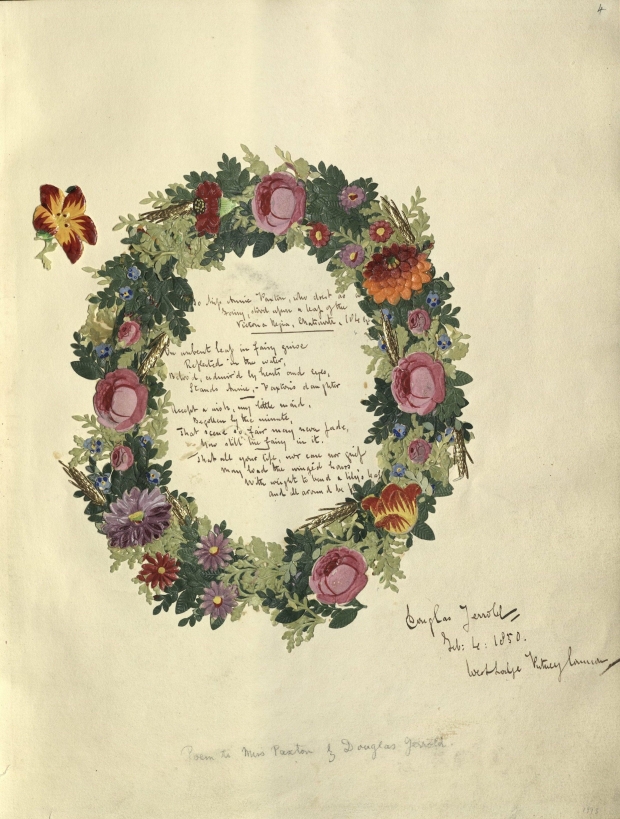 4
To Miss Annie Paxton, who drest as
Fairy, stood upon a leaf of the
Victoria Regia, Chatsworth, 1849.
On unbent leaf in fairy guise
Reflected in the water,
Belov'd, admir'd by hearts and eyes,
Stands Annie, - Paxton's daughter
Accept a wish, my little maid,
Begotten by the minute,
That scene so fair may never fade,
You still the fairy in it.
That all your life, nor care nor grief
May load the winged hours
With weight to bend a lily's leaf
and all around be
Douglas Jerrold
Feb: 4: 1850.
West Lodge Putney Common
Poem to Miss Paxton by Douglas Jerrold.